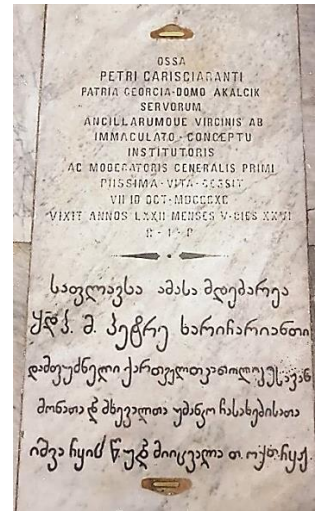 OSSA
PETRI CARISCIARANTI
PATRIA GEORGIA·DOMO AKALCIK
SERVORUM
ANCILLARUMQUE VIRGINIS AB
IMMACULATO·CONCEPTU
INSTITUTORIS
AC MODERATORIS GENERALIS PRIMI
PIISSIMA·VITA·CESSIT
VII ID OCT·MDCCCXC
VIXIT ANNOS LXXII MENSES V·DIES XXVI
R·I·P
საფლავსა ამასა მდებარეა
ყდპ. მ. პეტრე ხარიჩარიანთი
დამფუძნელი ქართველთკათოლიკესავან
მონათა და მხევალთა უმანკო ჩასახებისათა
იშვა ჩყიჱ წ. უდ მიიცვალა თ. ოქთ. ჩყჟ.